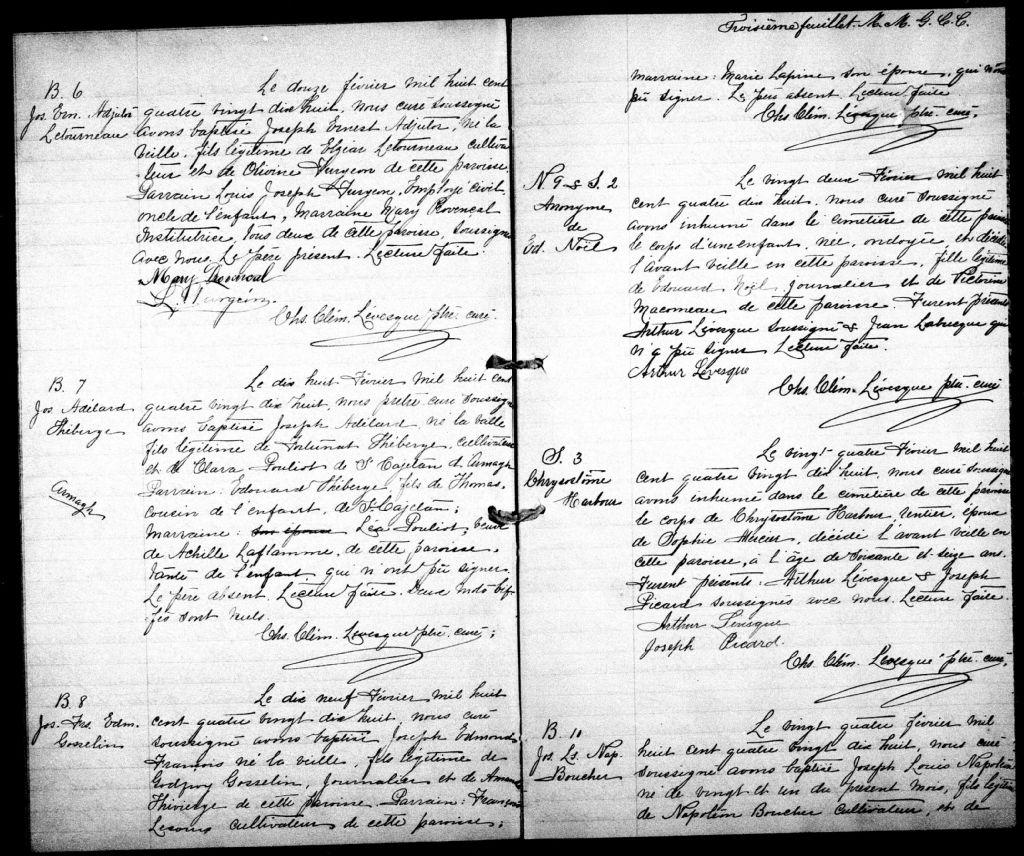 B. 6
Jos Ern. Adjutor
Letourneau
Le douze février mil huit cent
quatre vingt dix huit, nous curé soussigné
avons baptisé Joseph Ernest Adjutor, né la
veille, fils légitime de Elzear Letourneau cultiva
teur et de Olivine Turgeon de cette paroisse.
Parrain Louis Joseph Turgeon, Employé civil
oncle de l'enfant, Marraine Mary Provencal
Institutrice, tous deux de cette paroisse, soussignés
avec nous. Le père présent. Lecture faite.
Mary Provencal
L. Turgeon
Chs. Clém. Lévesque ptre. curé.
B. 7
Jos Adélard
Théberge
Armagh
Le dix huit Février mil huit cent
quatre vingt dix huit, nous prêtre curé soussigné
avons baptisé Joseph Adélard, né la veille
fils légitime de Fortunat Théberge, cultivateur
et de Clara Pouliot de St Cajetan d'Armagh
Parrain: Edouard Théberge, fils de Thomas,
cousin de l'enfant, de St. Cajetan;
Marraine: son épouse Léa Pouliot, veuve
de Achille Laflamme, de cette paroisse,
tante de l'enfant, qui n'ont pu signer.
Le père absent. Lecture faite. Deux mots bif
fés sont nuls.
Chs. Clém. Levesque ptre. curé;
B. 8
Jos. Frs. Edm.
Gosselin
Le dix neuf Février mil huit
cent quatre vingt dix huit, nous curé
soussigné avons baptisé Joseph Edmond
François né la veille, fils légitime de
Godfroy Gosselin, Journalier et de
Thivierge de cette paroisse. Parrain: François
Lecours cultivateur de cette paroisse;
Troisième feuillet. M. M. G. C. C.
marraine: Marie Lapine son épouse, qui n'ont
pu signer. Le père absent. Lecture faite
Chs Clém. Lévesque ptre. curé.
N. 9 & S. 2
Anonyme
de
Ed. Noël
Le vingt deux Février mil huit
cent quatre dix huit, nous curé soussigné
avons inhumé dans le cimetière de cette paroisse
le corps d'une enfant, née, ondoyée, et décédée
l'avant veille en cette paroisse, fille légitime
de Edouard Noël Journalier et de Victoria
Macomeau de cette paroisse. Furent présents
Arthur Lévesque soussigné & Jean Labrecque qui
n'a pu signer Lecture faite.
Arthur Lévesque
Chs. Clém. Lévesque ptre. curé
S. 3
Chrysostôme
Harbour
Le vingt quatre Février mil huit
cent quatre vingt dix huit, nous curé soussigné
avons inhumé dans le cimetière de cette paroisse
le corps de Chrysostôme Harbour, rentier, époux
de Sophie Mercier, décédé l'avant veille en
cette paroisse, à l'âge de soixante et seize ans.
Furent présents: Arthur Lévesque & Joseph
Picard soussignés avec nous. Lecture faite
Arthur Levesque
Joseph Picard.
Chs. Clém. Levesque ptre. curé.
B. 10
Jos. Ls. Nap.
Boucher
Le vingt quatre février mil
huit cent quatre vingt dix huit, nous curé
soussigné avons baptisé Joseph Louis Napoléon
né de vingt et un du présent mois, fils légitime
de Napoléon Boucher cultivateur, et de